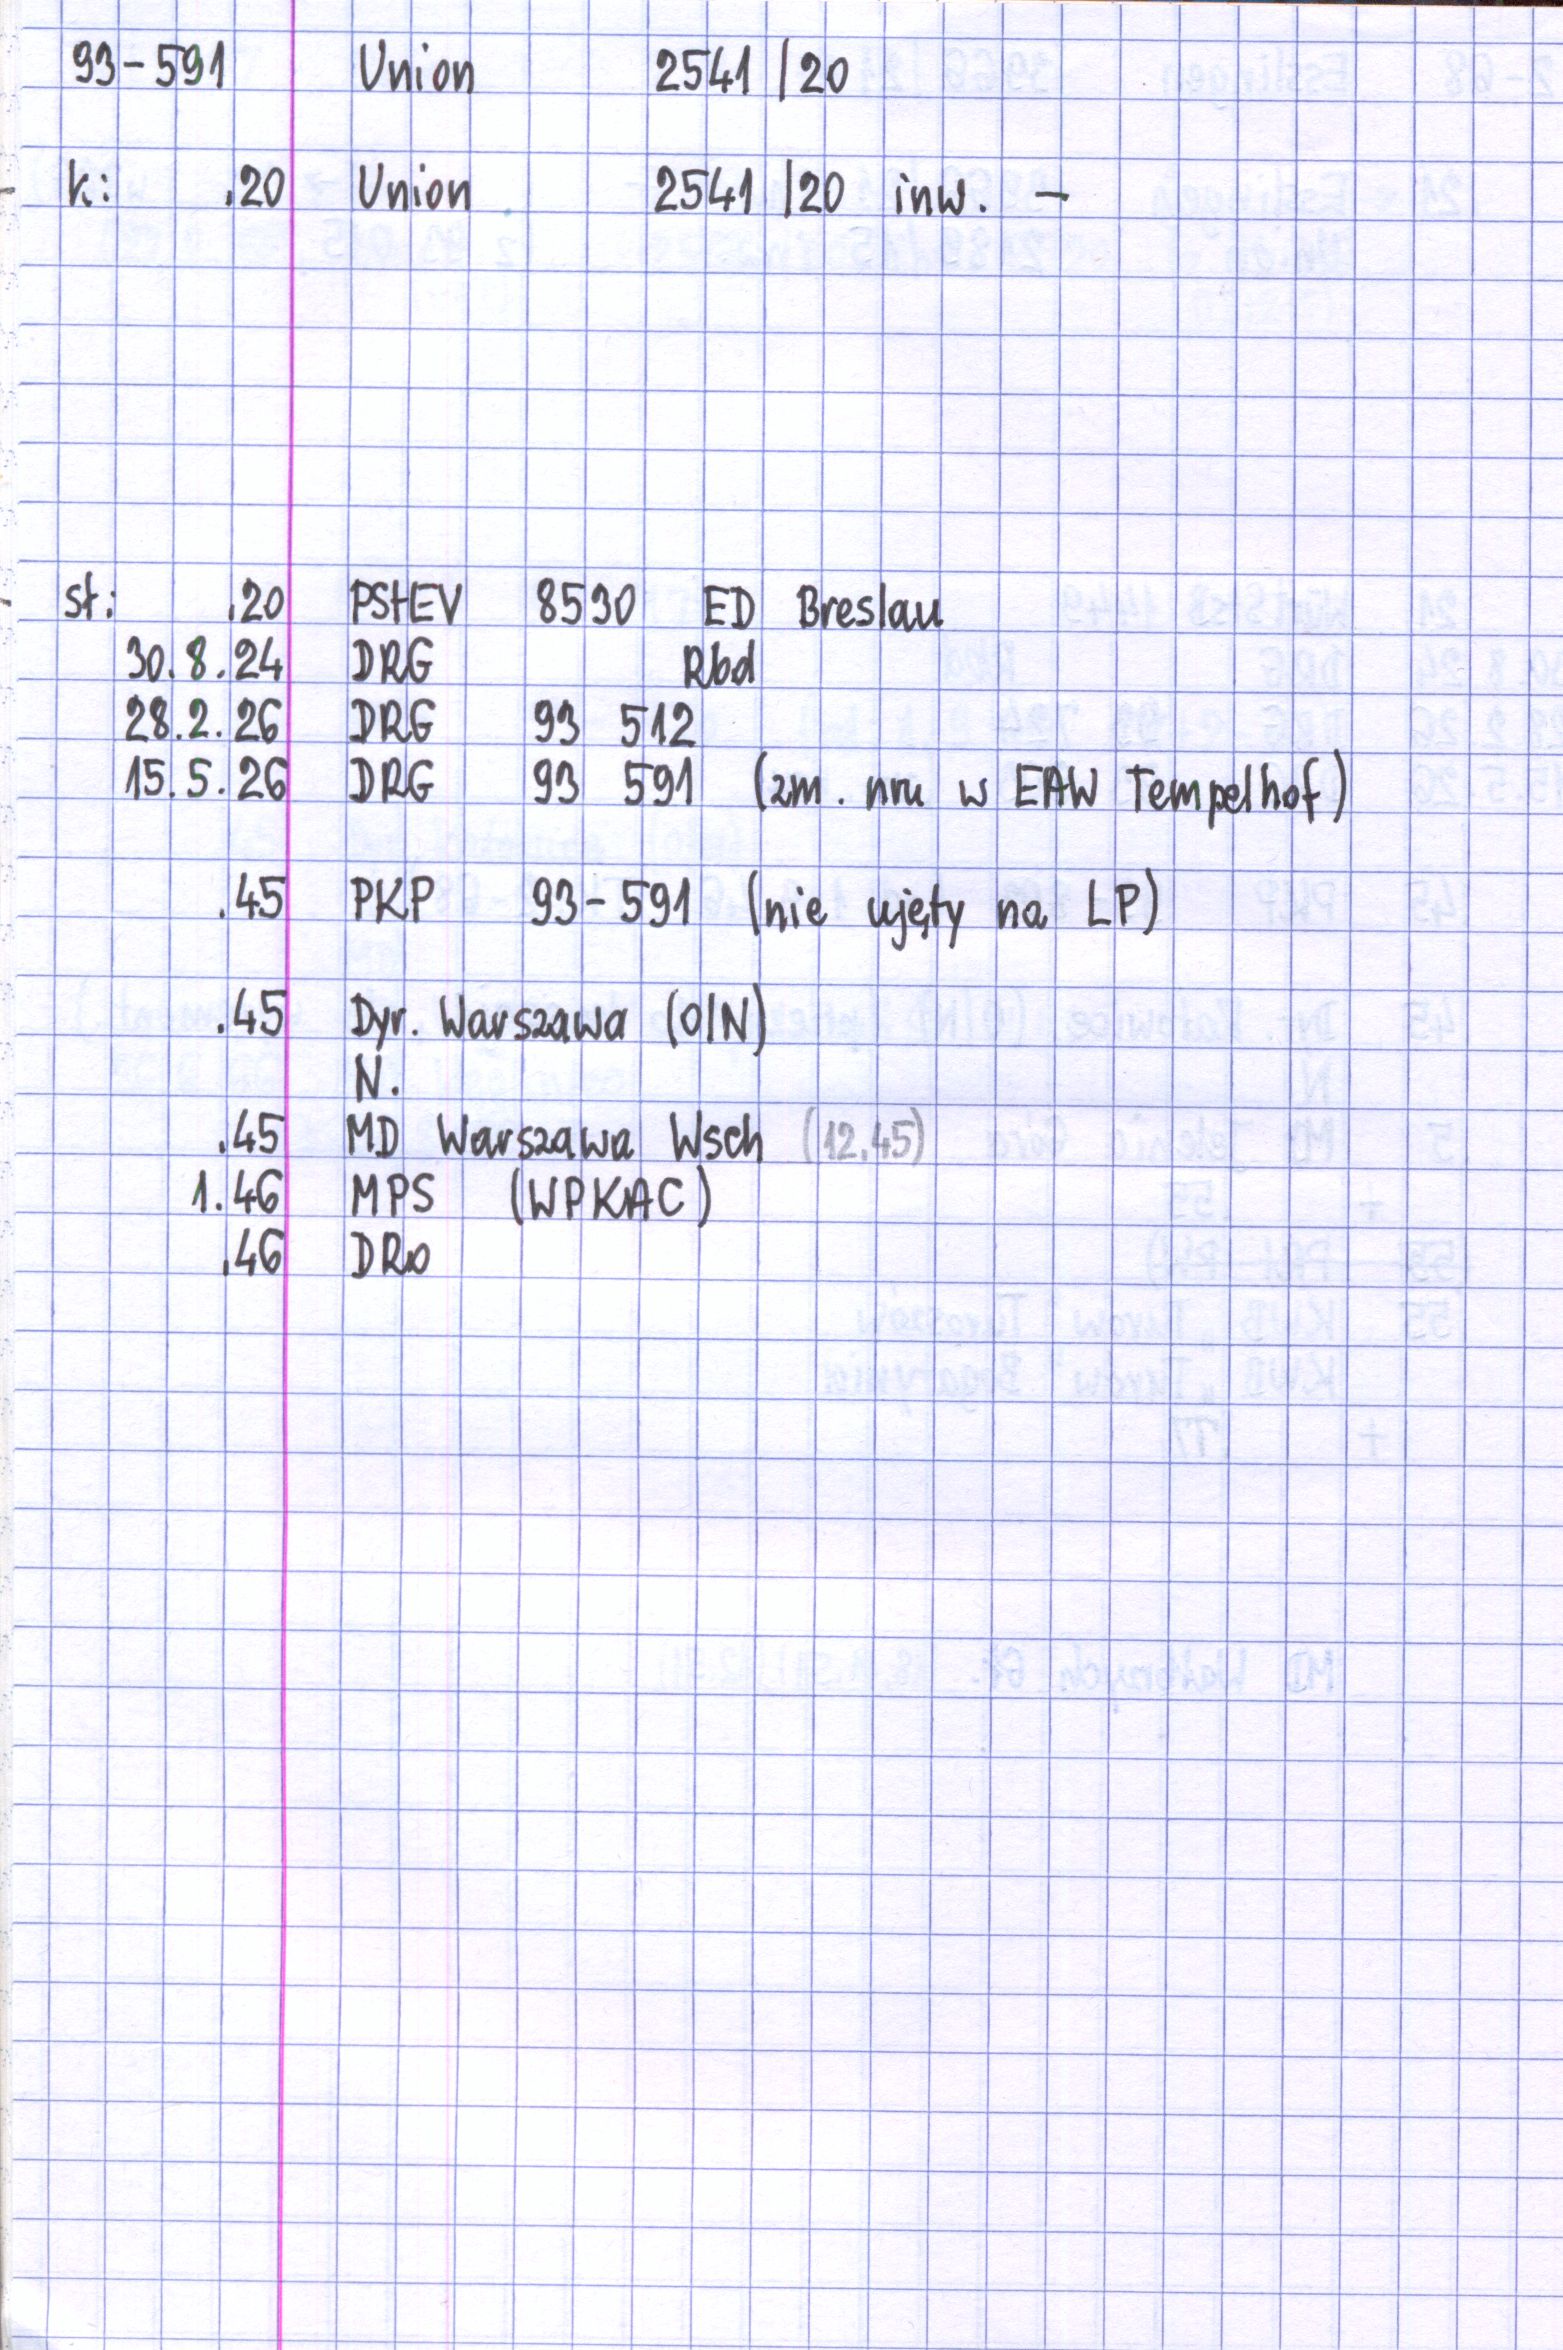 93-591 Union 2541/20
k: .20 Union 2541/20 inw. –
st: .20 PStEV 8530 ED Breslau
30.8.24 DRG Rbd
28.2.26 DRG 93 512
15.5.26 DRG 93 591 (zm. nru w EAW Tempelhof)
.45 PKP 93-591 (nie ujęty na LP)
.45 Dyr. Warszawa (OIN)
N.
.45 MD Warszawa Wsch (12.45)
1.46 MPS (WPKAC)
.46 DRo